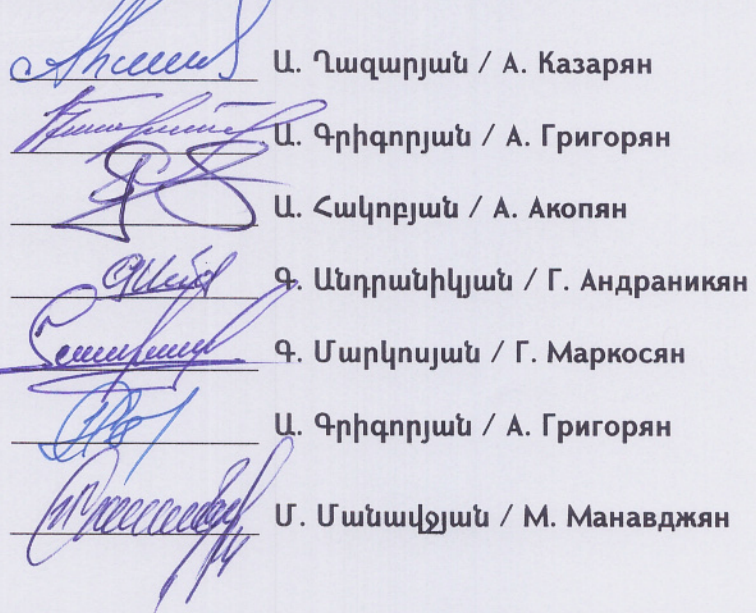 Ա. Ղազարյան / А. Казарян
Ա. Գրիգորյան / А. Григорян
Ա. Հակոբյան / А. Акопян
Գ. Անդրանիկյան / Г. Андраникян
Գ. Մարկոսյան / Г. Маркосян
Ա. Գրիգորյան / А. Григорян
Մ. Մանավջյան / М. Манавджян